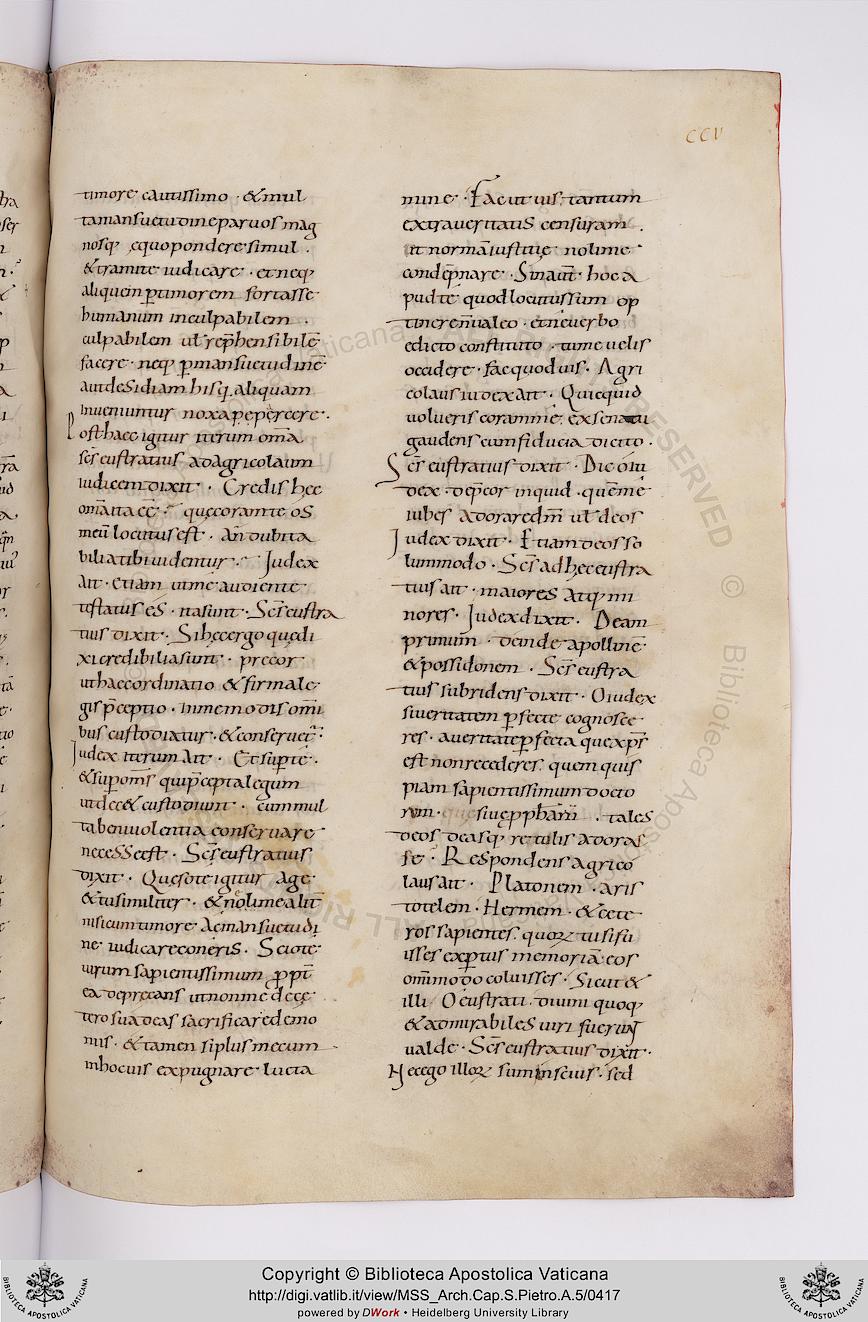 CCV
timore cautissimo · & mul
ta mansuetudine paruos mag
nosq; ęquo pondere simul .
& tramite iudicare · et neq;
aliquem p̱ timorem fortasse
humanum inculpabilem .
culpabilem ul̄ rep̄hensibilē
facere · neq; p̱ mansuetudinē
aut desidiam hisq; aliquam
inuenuntur noxa pepercere ·
Post haec igitur iterum om̄a
sc̄s eustratius ad agricolaum
iudicem dixit · Credis hęc
om̄a ita eē · quę coram te os
meū locutus est · An dubita
bilia tibi uidentur · Iudex
ait · Etiam ut me audiente
testatus es · ita sunt · Sc̄s eustra
tius dixit · Si hęc ergo quę di
xi credibilia sunt · precor
ut haec ordinatio & firma le
gis p̄ceptio · in me modis omni
bus custodiatur · & conseruet̄ ·
Iudex iterum ait · Et sup̱ te ·
& sup̱ om̄s qui p̄cepta legum
ut dec& custodiunt · cum mul
ta beniuolentia conseruare
necesse est · Sc̄s eustratius
dixit · Quęso te igitur age
& tu similiter · & noli me alit̄
nisi cum timore ac mansuetudi
ne iudicare coneris · Scio te
uirum sapientissimum p̱pt̄
ea deprecans ut non me de cę
tero suadeas sacrificare demo
niis · & tamen si plus mecum
in hoc uis expugnare lucta
mine · Facut uis · tantum
extra ueritatis censuram .
ut normā iustitię noli me
condēpnare · Sin aut̄ hoc a
pud te quod locutus sum op
tinere n̄ ualeo · et ne uerbo
edicto constituto · tu me uelis
occidere · fac quod uis · Agri
colaus iudex ait · Quicquid
uolueris coram me ex senatu
gaudens cum fiducia dicito ·
Sc̄s eustratius dixit · Dic o iu
dex · dep̄cor inquid · quem me
iubes adorare dm̄ ul̄ deos
Iudex dixit · Etiam deos so
lummodo · Sc̄s ad hęc eustra
tius ait · maiores atq; mi
nores · Iudex dixit · Deam
primum · deinde apollinē
& possidonem · Sc̄s eustra
tius subridens dixit · O iudex
si ueritatem p̱fecte cognosce
res · a ueritate p̱fecta que xp̄s
est non recederes · quem quis
piam sapientissimum docto
rum · siue p̱pham̄ . tales
deos deasq; retulis adoras
se · Respondens agrico
laus ait · Platonem · aris
totelem · Hermem · & cete
ros sapientes · quoꝝ tu si fu
isses exp̱tus memoriā eos
om̄modo coluisses · Sicut &
illi · O eustrati · diuini quoq;
& admirabiles uiri fuerunt
ualde · Sc̄s eustratius dixit ·
Nec ego illoꝝ sum inscius · sed
Copyright © Biblioteca Apostolica Vaticana
http://digi.vatlib.it/view/MSS_Arch.Cap.S.Pietro.A.5/0417
powered by DWork • Heidelberg University Library